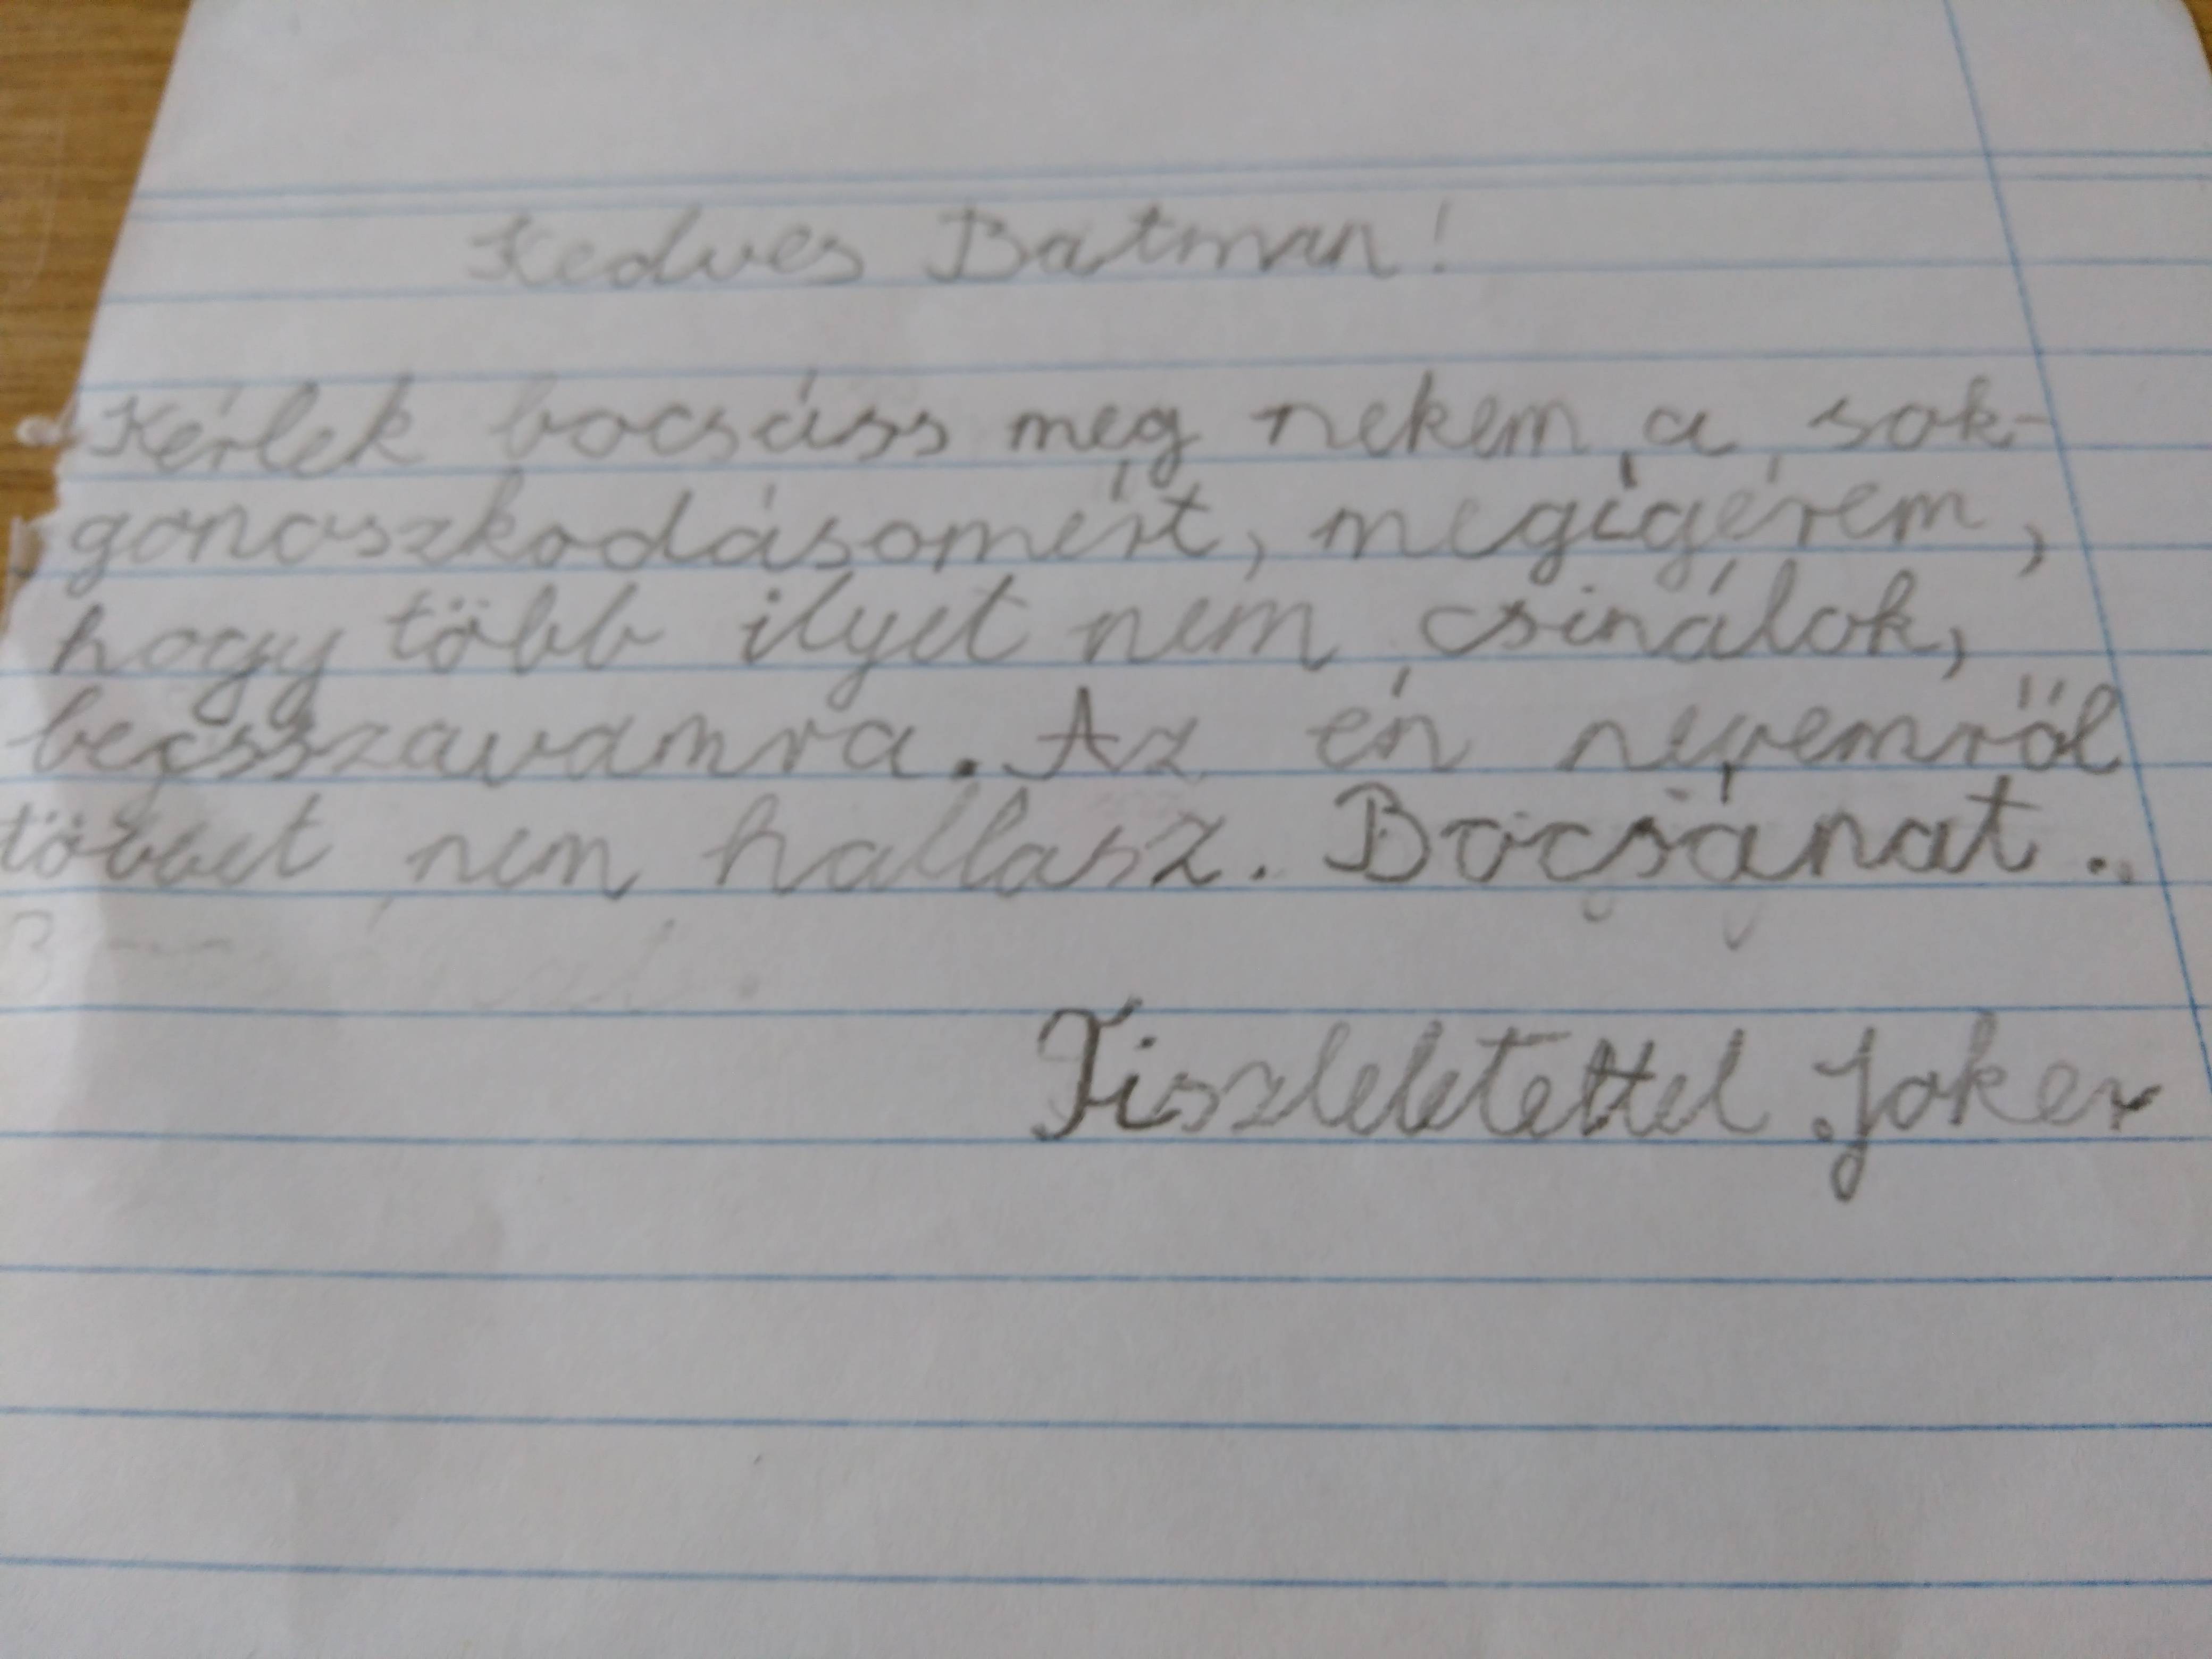 Kedves Batman!
Kérlek bocsáss meg nekem a sok-
gonoszkodásomért, megígérem,
hogy több ilyet nem csinálok,
becsszavamra. Az én nevemről
többet nem hallasz. Bocsánat.
Tiszleletettel Joker